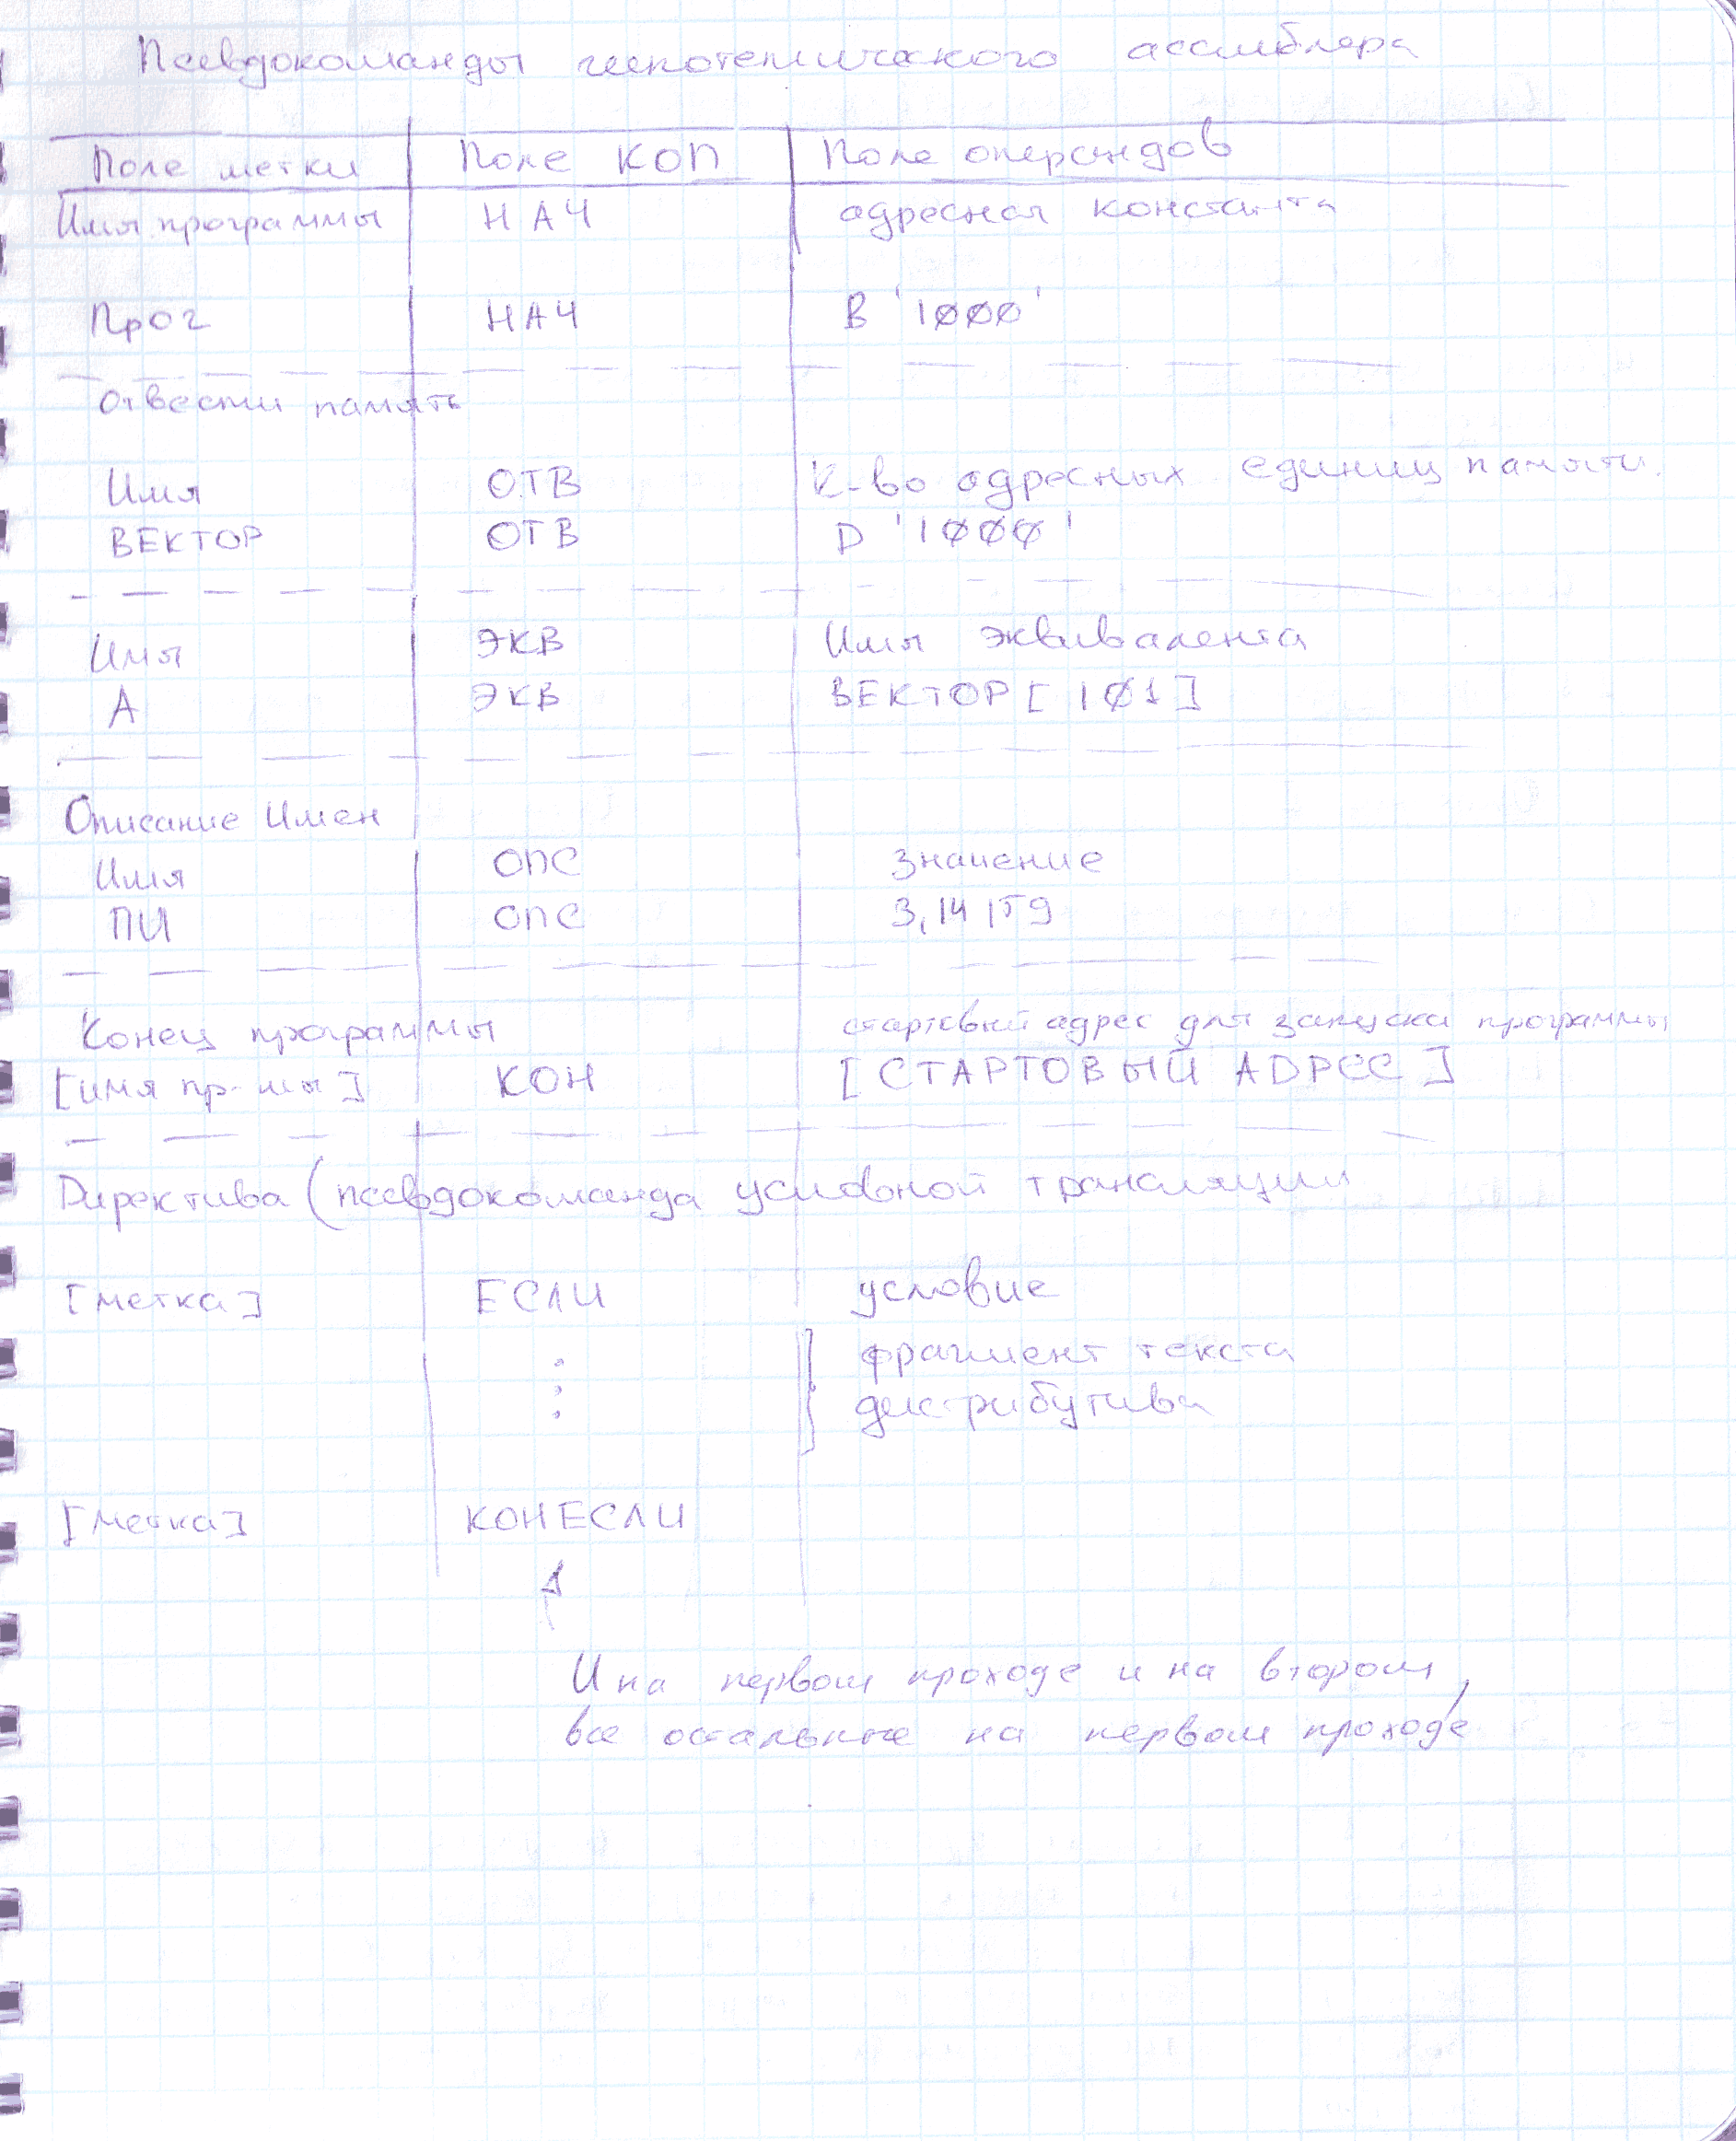 Псевдокоманды гипотетического ассемблера
Поле метки Поле КОП Поле операндов
Имя программы НАЧ адресная константа
Прог НАЧ В '1000'
Отвести память
Имя ОТВ К-во адресных единиц памяти.
ВЕКТОР ОТВ D '1000'
Имя ЭКВ Имя эквивалента
А ЭКВ ВЕКТОР [ 101 ]
Описание Имен
Имя ОПС значение
ПИ ОПС 3,14159
Конец программы стартовый адрес для запуска программы
[имя пр-мы] КОН [СТАРТОВЫЙ АДРЕС]
Директива (псевдокоманда условной трансляции
[метка] ЕСЛИ условие
фрагмент текста
дистрибутива
[метка] КОНЕСЛИ
И на первом проходе и на втором,
все остальные на первом проходе